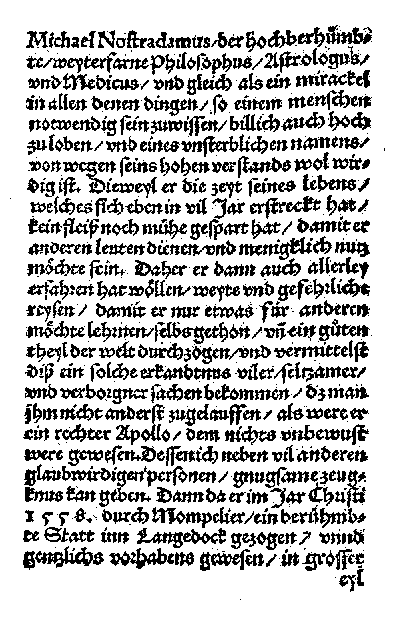 Michael Nostradamus/der hochberhümb-
te/weyterfarne Philosophus/Astrologus/
vnd Medicus/vnd gleich als ein mirackel
in allen denen dingen/so einem menschen
notwendig sein zuwissen/billich auch hoch
zu loben/vnd eines vnsterblichen namens/
von wegen seins hohen verstands wol wir-
dig ist. Dieweyl er die zeyt seines lebens/
welches sich eben in vil Jar erstreckt hat/
kein fleiß noch mühe gespart hat/damit er
anderen leuten dienen/vnd menigklich nutz
möchte sein. Daher er dann auch allerley
erfahren hat wöllen/weyte vnd gefehrliche
reysen/damit er nur etwas für anderen
möchte lehrnen/selbs gethon/vñ ein gůten
theyl der welt durchzogen/vnd vermittelst
diß ein solche erkandtnus viler/seltzamer/
vnd verborgner sachen bekommen/dz man
jhm nicht anderst zugelauffen/als were er
ein rechter Apollo/dem nichts vnbewust
were gewesen. Dessenich neben vil anderen
glaubwirdigen personen/gnugsame zeug-
knus kan geben. Dann da er im Jar Christi
1558. durch Mompelier/ein berühmb-
te Statt inn Langedock gezogen/vnnd
gentzlichs vorhabens gewesen/in grosser
eyl